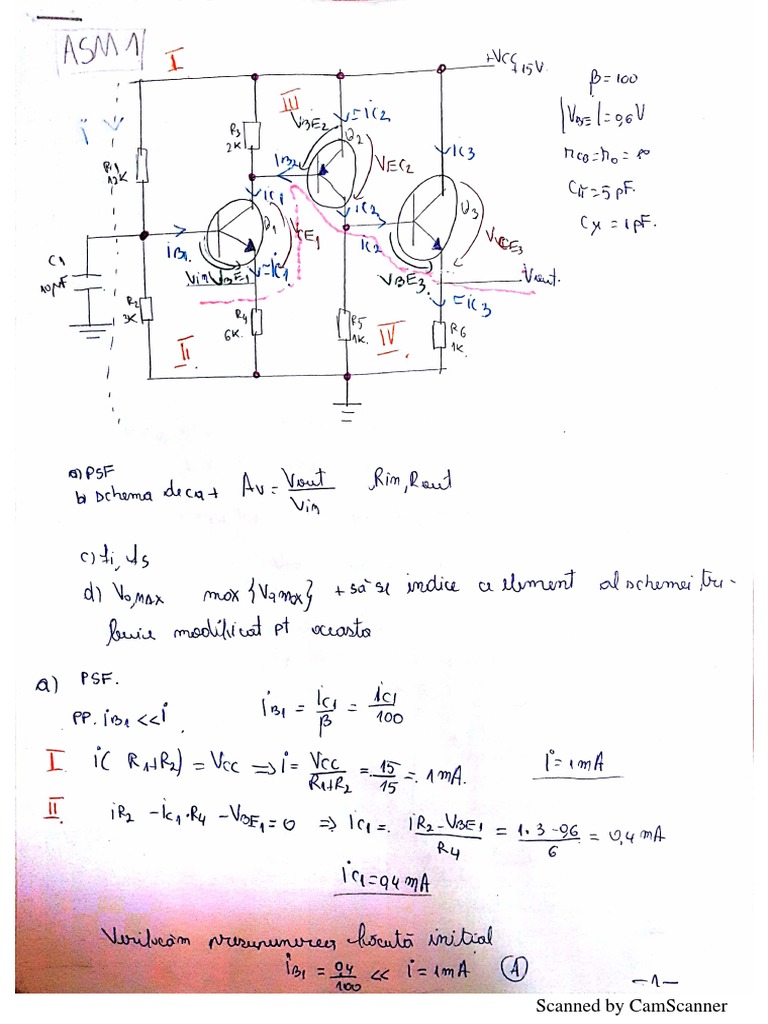 ASM1
I
+VCC +15V
β=100
|VBE|=0,6V
rce=ro=∞
Cπ=5pF.
Cμ=1pF.
i
R1
12K
R3
2K
III
VBE2
=ic2
Q2
IB2
VEC2
ic3
ic1
ic2
Q3
VCE3
Q1
VCE1
iB1
ic2
VBE3
C1
10μF
Vin
VBE1
=ic1
Vout
=ic3
R2
3K
R4
6K
R5
1K
R6
1K
II
IV
a) PSF
b) schema de ca + Av = Vout/Vin Rin, Rout
c) fi, fs
d) Vo,max max {Vomax} + să se indice ce element al schemei tre-
buie modificat pt aceasta
a) PSF.
PP. iB1 << i iB1 = ic1/β = ic1/100
I i( R1+R2) = Vcc ⟹ i = Vcc/(R1+R2) = 15/15 = 1mA. i=1mA
II iR2 - ic1·R4 - VBE1=0 ⟹ ic1 = (iR2-VBE1)/R4 = (1·3-0,6)/6 = 0,4mA
ic1=0,4mA
Verificăm presupunerea făcută initial
iB1 = 0,4/100 << i=1mA (A)
-1-
Scanned by CamScanner